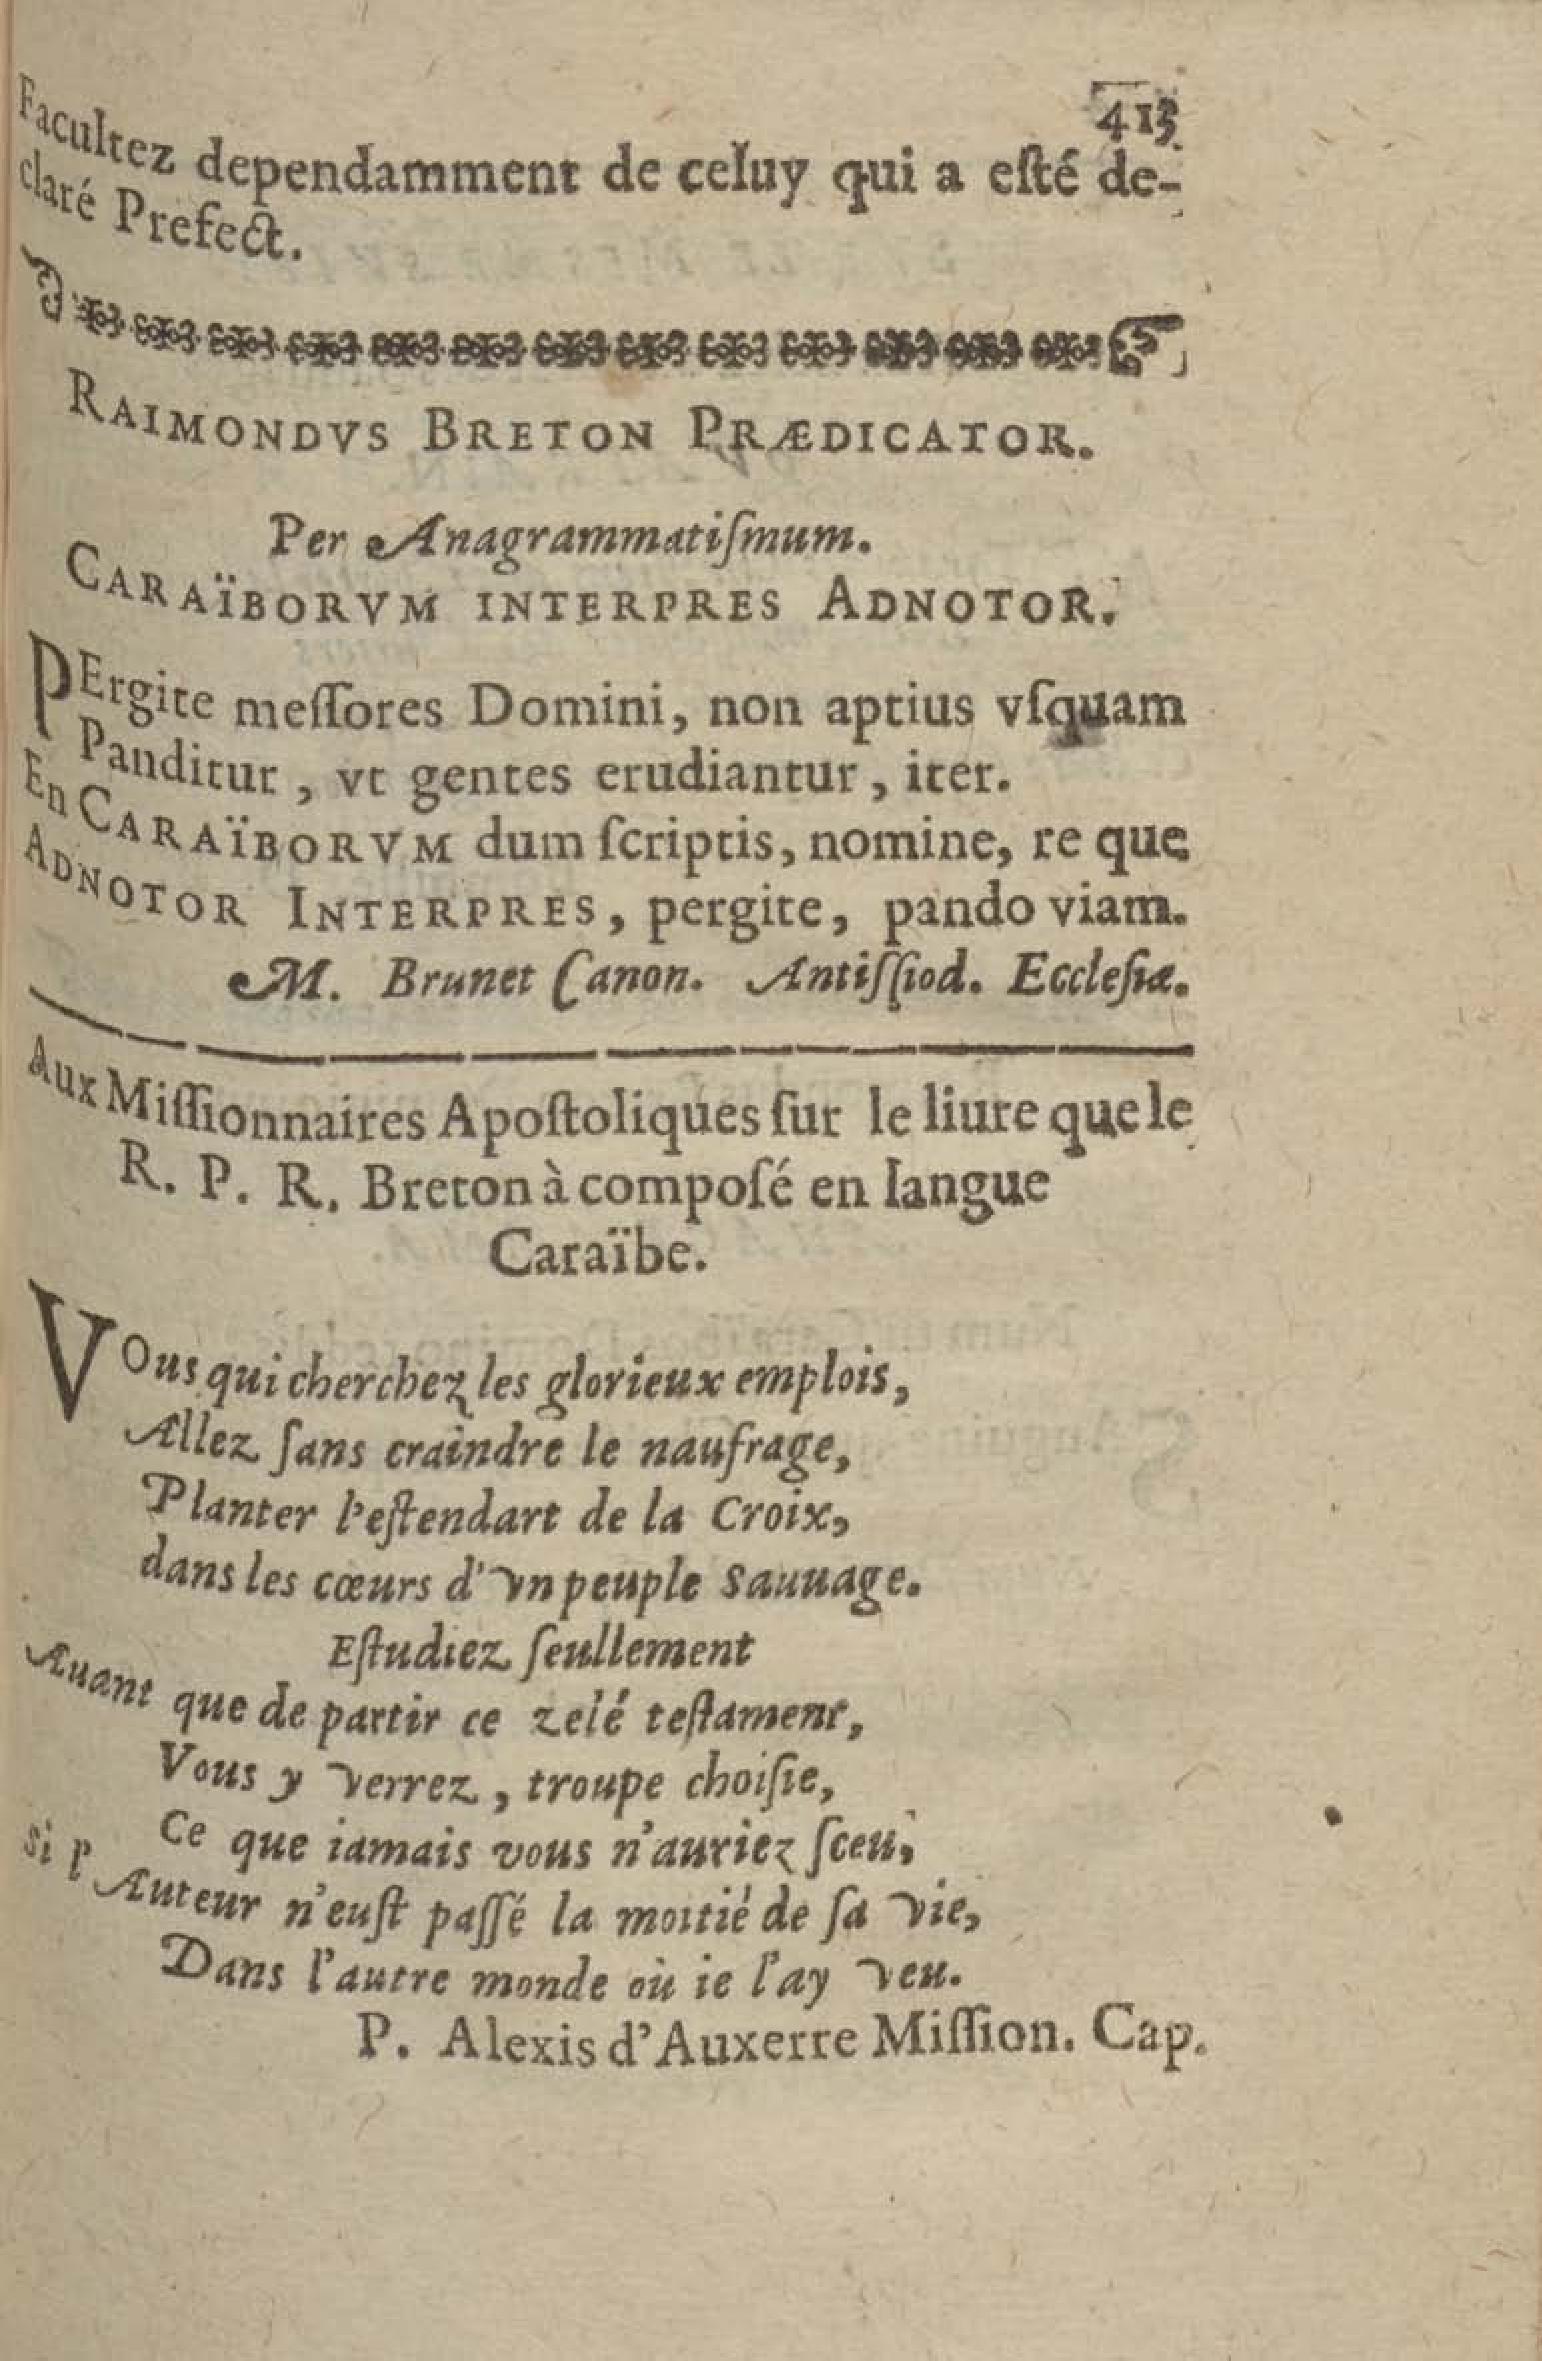 413
Facultez dependamment de celuy qui a eſté de-
claré Prefect.
RAIMONDVS BRETON PRÆDICATOR.
Per Anagrammatiſmum.
CARAÏBORVM INTERPRES ADNOTOR.
PErgite meſſores Domini, non aptius vſquam
Panditur, vt gentes erudiantur, iter.
En CARAÏBORVM dum ſcriptis, nomine, re que
ADNOTOR INTERPRES, pergite, pando viam.
M. Brunet Canon. Antiſſiod. Eccleſiæ.
Aux Miſſionnaires Apoſtoliques ſur le liure que le
R. P. R. Breton à compoſé en langue
Caraïbe.
VOus qui cherchez les glorieux emplois,
Allez ſans craindre le naufrage,
Planter l'eſtendart de la Croix,
dans les cœurs d'vn peuple sauuage.
Eſtudiez ſeullement
Auant que de partir ce zelé teſtament,
Vous y verrez, troupe choiſie,
Ce que iamais vous n'auriez ſceu,
si l'Auteur n'euſt paſſé la moitié de ſa vie,
Dans l'autre monde où ie l'ay veu.
P. Alexis d'Auxerre Miſſion. Cap.